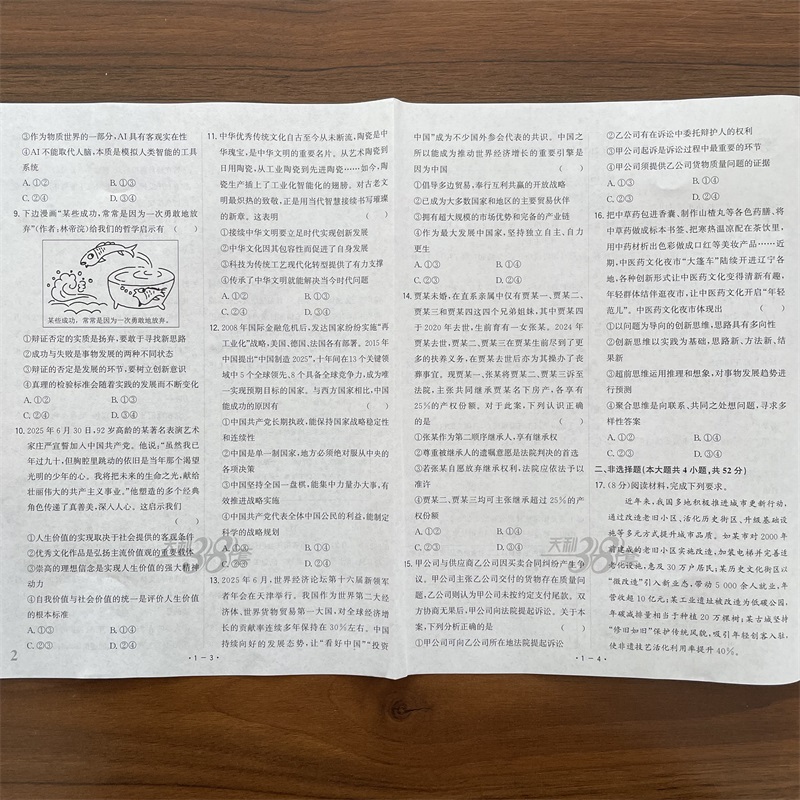 ③作为物质世界的一部分,AI具有客观实在性
④AI不能取代人脑,本质是模拟人类智能的工具
系统
A.①② B.①③
C.②④ D.③④
9.下边漫画“某些成功,常常是因为一次勇敢地放
弃”(作者:林帝浣)给我们的哲学启示有 ( )
某些成功,常常是因为一次勇敢地放弃.
①辩证否定的实质是扬弃,要敢于寻找新思路
②成功与失败是事物发展的两种不同状态
③辩证的否定是发展的环节,要树立创新意识
④真理的检验标准会随着实践的发展而不断变化
A.①② B.①③
C.②④ D.③④
10.2025年6月30日,92岁高龄的某著名表演艺术
家庄严宣誓加入中国共产党。他说:“虽然我已
年过九十,但胸腔里跳动的依旧是当年那个渴望
光明的少年的心。我将把未来的生命之光,献给
壮丽伟大的共产主义事业。”他塑造的多个经典
角色传递了真善美,深入人心。这启示我们
( )
①人生价值的实现取决于社会提供的客观条件
②优秀文化作品是弘扬主流价值观的重要载体
③崇高的理想信念是实现人生价值的强大精神
动力
④自我价值与社会价值的统一是评价人生价值
的根本标准
A.①③ B.①④
C.②③ D.②④
2
·1-3·
11.中华优秀传统文化自古至今从未断流,陶瓷是中
华瑰宝,是中华文明的重要名片。从艺术陶瓷到
日用陶瓷,从工业陶瓷到先进陶瓷……如今,陶
瓷生产插上了工业化智能化的翅膀。对古老文
明最炽热的致敬,正是用当代智慧接续书写璀璨
的新章。这表明 ( )
①接续中华文明要立足时代实现创新发展
②中华文化因其包容性而促进了自身发展
③科技为传统工艺现代化转型提供了有力支撑
④传承了中华文明就能解决当今时代问题
A.①② B.①③
C.②④ D.③④
12.2008年国际金融危机后,发达国家纷纷实施“再
工业化”战略,美国、德国、法国各有部署。2015年
中国提出“中国制造2025”,十年间在13个关键领
域中5个全球领先、8个具备全球竞争力,成为唯
一实现预期目标的国家。与西方国家相比,中国
能成功的原因有 ( )
①中国共产党长期执政,能保持国家战略稳定性
和连续性
②中国是单一制国家,地方必须绝对服从中央的
各项决策
③中国坚持全国一盘棋,能集中力量办大事,有
效推进战略实施
④中国共产党代表全体中国公民的利益,能制定
科学的战略规划
A.①③ B.①④
C.②③ D.②④
13.2025年6月,世界经济论坛第十六届新领军
者年会在天津举行。我国作为世界第二大经
济体、世界货物贸易第一大国,对全球经济增
长的贡献率连续多年保持在30%左右。中国
持续向好的发展态势,让“看好中国”“投资
天利38套
中国”成为不少国外参会代表的共识。中国之
所以能成为推动世界经济增长的重要引擎是
因为中国 ( )
①倡导多边贸易,奉行互利共赢的开放战略
②已成为大多数国家和地区的主要贸易伙伴
③拥有超大规模的市场优势和完备的产业链
④作为最大发展中国家,坚持独立自主、自力
更生
A.①② B.①③
C.②④ D.③④
14.贾某未婚,在直系亲属中仅有贾某一、贾某二、
贾某三和贾某四这四个兄弟姐妹,其中贾某四
于2020年去世,生前育有一女张某。2024年
贾某去世,贾某二、贾某三在贾某生前尽到了更
多的扶养义务,在贾某去世后亦为其操办了丧
葬事宜。现贾某一、张某将贾某二、贾某三诉至
法院,主张共同继承贾某名下房产,各享有
25%的产权份额。对于此案,下列认识正确
的是 ( )
①张某作为第二顺序继承人,享有继承权
②尊重被继承人的遗嘱意愿是法院判决的首选
③若张某自愿放弃继承权利,法院应依法予以
准许
④贾某二、贾某三均可主张继承超过25%的产
权份额
A.①② B.①③
C.②④ D.③④
15.甲公司与供应商乙公司因买卖合同纠纷产生争
议。甲公司主张乙公司交付的货物存在质量问
题,乙公司则认为甲公司未按约定支付尾款。双
方协商无果后,甲公司向法院提起诉讼。关于本
案,下列分析正确的是 ( )
①甲公司可向乙公司所在地法院提起诉讼
②乙公司有在诉讼中委托辩护人的权利
③甲公司起诉是诉讼过程中最重要的环节
④甲公司须提供乙公司货物质量问题的证据
A.①② B.①④
C.②③ D.③④
16.把中草药包进香囊、制作山楂丸等各色药膳、将
中草药做成标本书签、把寒热温凉配在茶饮里、
用中药材析出色彩做成口红等美妆产品……近
期,中医药文化夜市“大篷车”陆续开进辽宁各
地,各种创新形式让中医药文化变得清新有趣,
年轻群体结伴逛夜市,让中医药文化开启“年轻
范儿”。中医药文化夜市体现出 ( )
①以问题为导向的创新思维,思路具有多向性
②创新思维以实践为基础,思路新、方法新、结
果新
③超前思维运用推理和想象,对事物发展趋势进
行预测
④聚合思维是向联系、共同之处想问题,寻求多
样性答案
A.①② B.①③
C.②④ D.③④
二、非选择题(本大题共4小题,共52分)
17.(8分)阅读材料,完成下列要求。
近年来,我国多地积极推进城市更新行动,
通过改造老旧小区、活化历史街区、升级基础设
施等多元方式提升城市品质。如某市对2000年
前建成的老旧小区实施改造,加装电梯并完善适
老化设施,惠及30万户居民;某历史文化街区以
“微改造”引入新业态,带动5000余人就业,年
营收超10亿元;某工业遗址被改造为低碳公园,
年碳减排量相当于种植20万棵树;某古城坚持
“修旧如旧”保护传统风貌,吸引年轻创客入驻,
使非遗技艺活化利用率提升40%。
天利38套
·1-4·